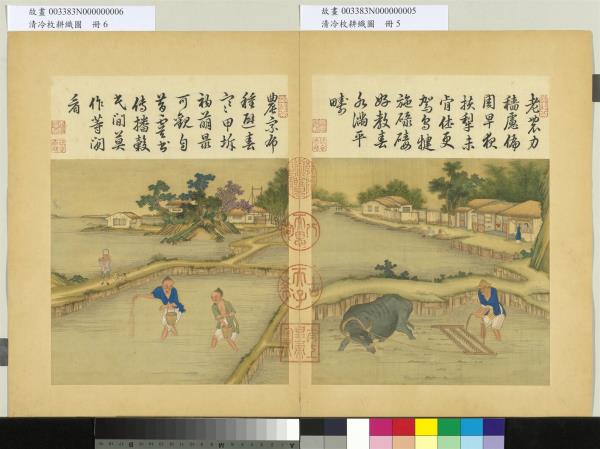 故畫 003383N000000006
清冷枚耕織圖 冊 6
故畫 003383N000000005
清冷枚耕織圖 冊 5
老農力
穡慮偏
周早夜
扶犂未
肯休更
駕烏犍
施碌碡
好教春
水滿平
疇
農家布
種避春
寒甲坼
初萌最
可觀自
昔虞書
傳播穀
民間莫
作等閒
看